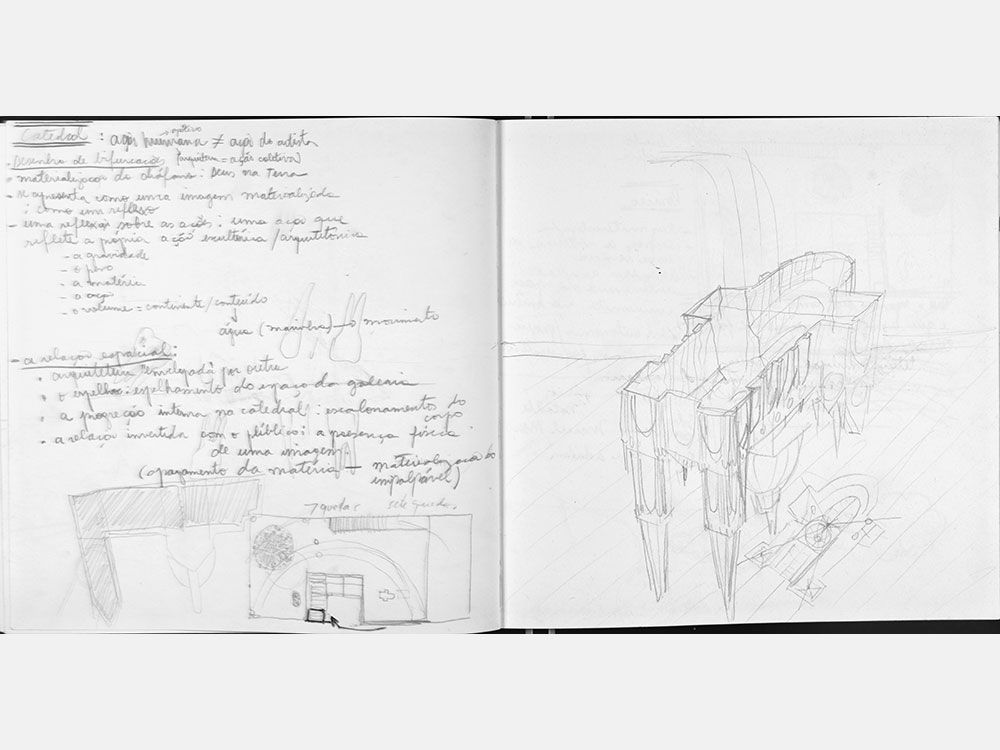 Catedral : ação humana ≠ ação do
coletiva
- Desenho de bifurcações (arquitetura = ação coletiva)
- materialização do diáfano : Deus na Terra
- se apresenta como uma imagem materializada
: como um reflexo
- uma reflexão sobre as ações : uma ação que
reflete a própria ação escultórica / arquitetônica
- a gravidade
- o peso
- a matéria
- a ação
- o volume = continente / conteúdo
água ( ) → o movimento
- a relação espacial :
• arquitetura envelopada por outra
• o espelho : espelhamento do espaço da galeria
• a progressão interna na catedral : escalonamento do
corpo
• a relação invertida com o público : a presença física
de uma imagem.
(apagamento da matéria — materialização do
impalpável)
7 quedas sete quedas.